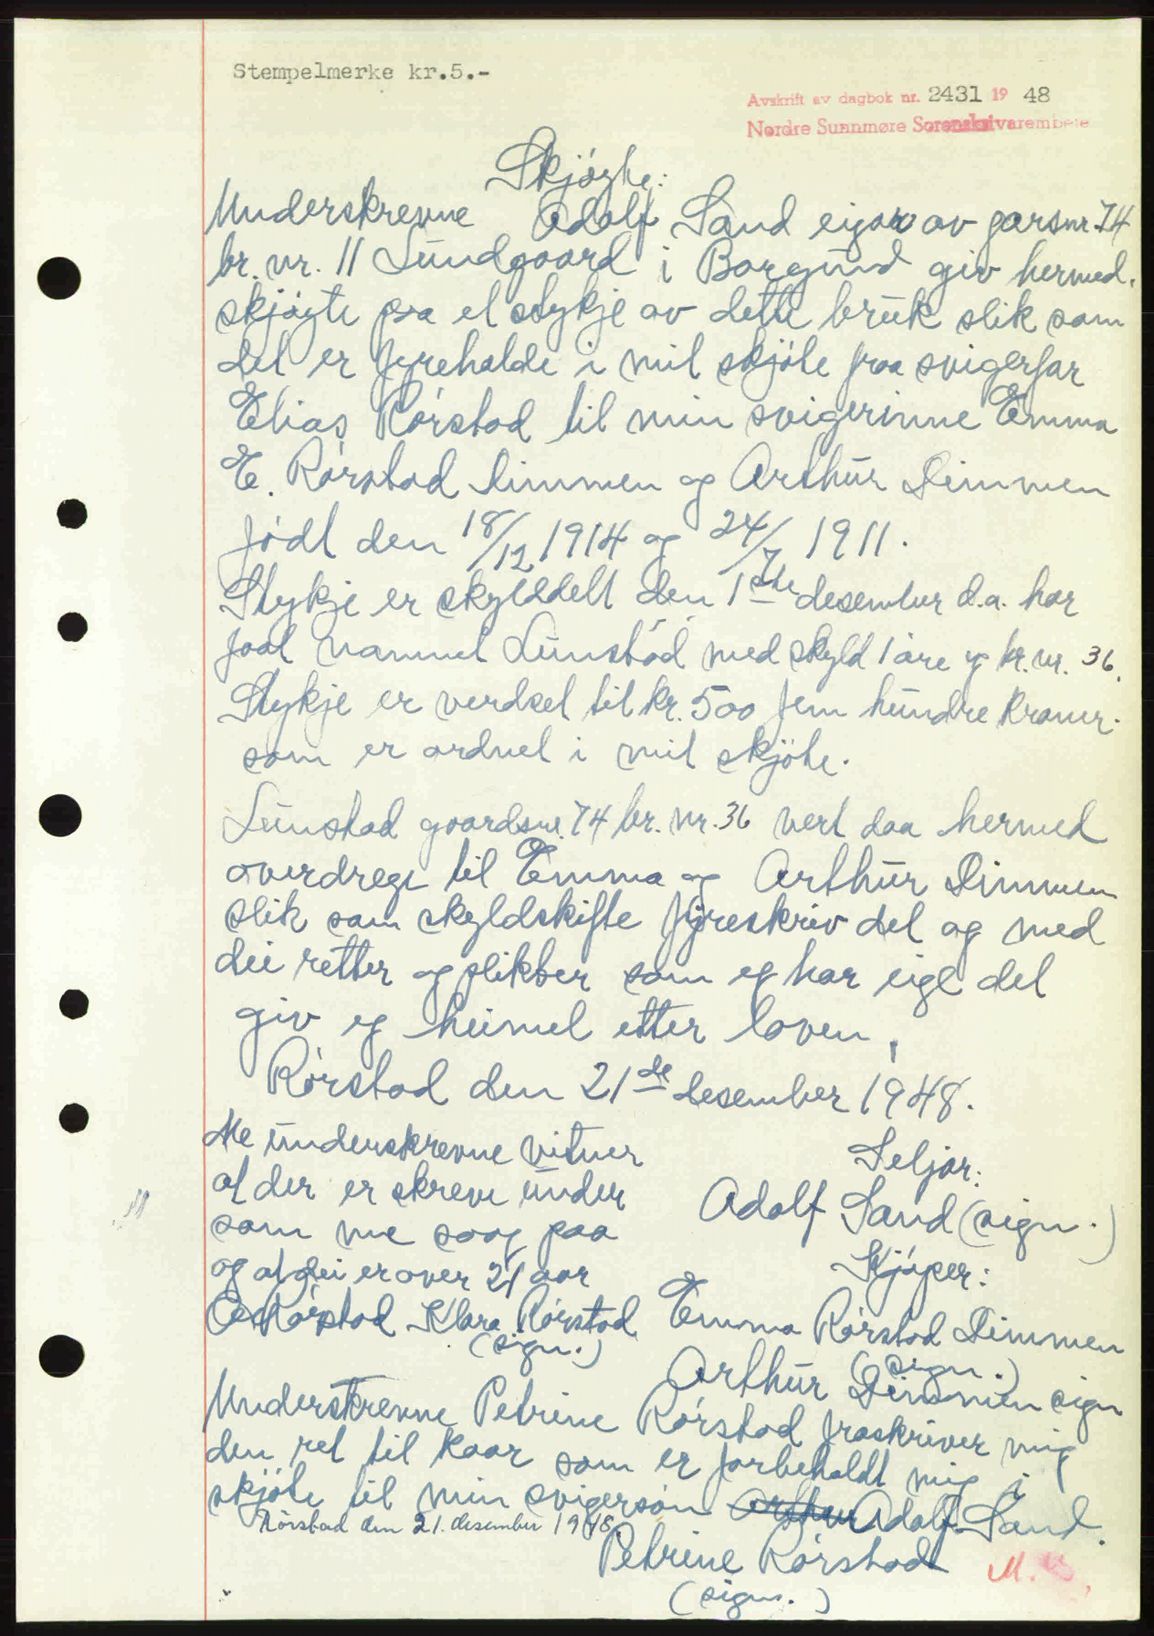 Stempelmerke kr.5.-
Avskrift av dagbok nr. 2431 19 48
Nordre Sunnmøre Sorenskrivarembete
Skjøghe:
Underskrevne Adolf Sand eigar av garsnr. 74
br. nr. 11 Lundgaard i Borgund giv hermed.
skjøgte paa et stykje av dette bruk slik som
det er fyrehalde i mit skjøte fraa svigerfar
Elias Rørstad til min svigerinne Emma
E. Rørstad Dimmen og Arthur Dimmen
født den 18/12 1914 og 24/7 1911.
Stykje er skylddelt den 1ste desember d.a. har
faat namnet Lunstad med skyld 1 øre og br. nr. 36.
Stykje er verdset til kr. 500 fem hundre kroner.
som er ordnet i mit skjøte.
Lunstad gaardsnr. 74 br. nr. 36 vert daa hermed
overdrege til Emma og Arthur Dimmen
slik som skyldskifte fyreskriv det og med
dei retter og plikter som eg har eigt det
giv eg heimel etter loven.
Rørstad den 21de desember 1948.
Me underskrevne vitner
at der er skreve under
som me saag paa
og at dei er over 21 aar
Seljar:
Adolf Sand (sign.)
Kjøper:
Rørstad Klara Rørstad
(sign.)
Emma Rørstad Dimmen
(sign.)
Arthur Dimmen sign
Underskrevne Petrine Rørstad fraskriver mig
den ret til kaar som er forbeholdt mig i
skjøte til min svigersøn Arthur Adolf Sand.
Rørstad den 21. desember 1948.
Petrine Rørstad
(sign.)